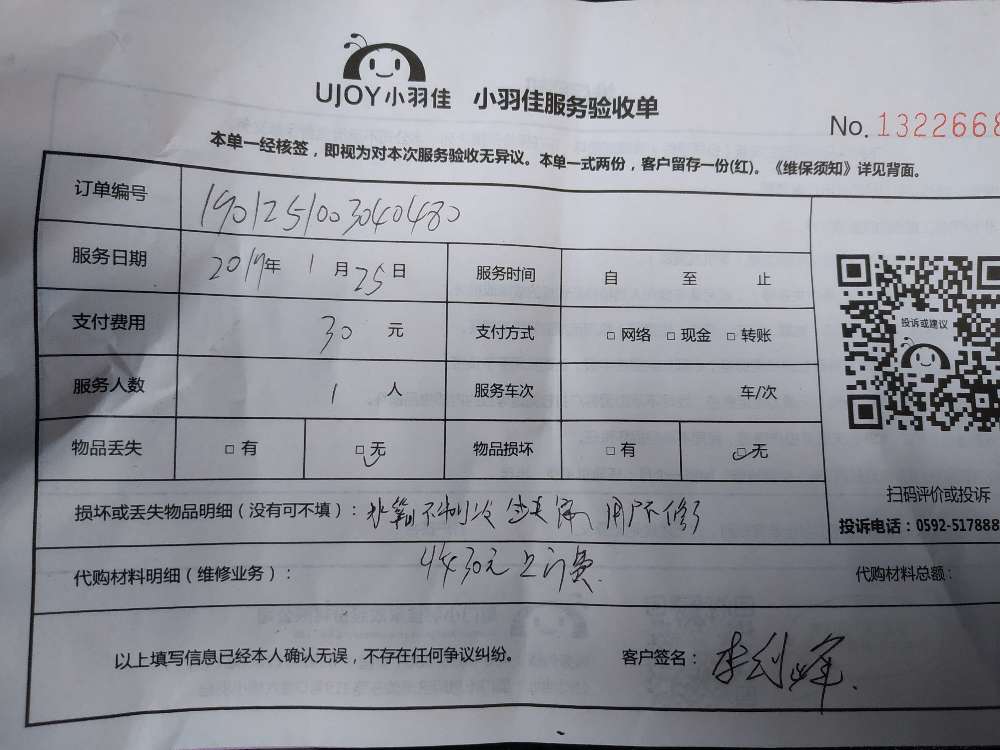 UJOY小羽佳 小羽佳服务验收单
No. 1322668
本单一经核签，即视为对本次服务验收无异议。本单一式两份，客户留存一份(红)。《维保须知》详见背面。
订单编号 1901251003040480
服务日期 2019年 1月 25日 服务时间 自 至 止
投诉或建议
支付费用 30 元 支付方式 □ 网络 □ 现金 □ 转账
服务人数 1 人 服务车次 车/次
物品丢失 □ 有 □ 无 物品损坏 □ 有 □ 无
扫码评价或投诉
损坏或丢失物品明细（没有可不填）： 不制冷 用户不修了
投诉电话：0592-517888
代购材料明细（维修业务）： 收30元上门费. 代购材料总额：
以上填写信息已经本人确认无误，不存在任何争议纠纷。 客户签名： 李利峰.